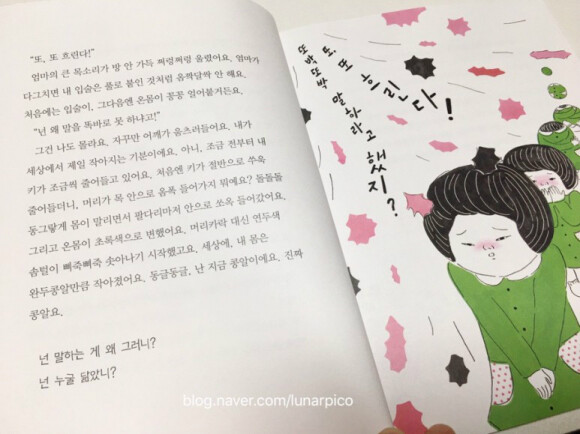 "또, 또 흐린다!"
엄마의 큰 목소리가 방 안 가득 쩌렁쩌렁 울렸어요. 엄마가
다그치면 내 입술은 풀로 붙인 것처럼 옴짝달싹 안 해요.
처음에는 입술이, 그다음엔 온몸이 꽁꽁 얼어붙거든요.
"넌 왜 말을 똑바로 못 하냐고!"
그건 나도 몰라요. 자꾸만 어깨가 움츠러들어요. 내가
세상에서 제일 작아지는 기분이에요. 아니, 조금 전부터 내
키가 조금씩 줄어들고 있어요. 처음엔 키가 절반으로 쑤욱
줄어들더니, 머리가 목 안으로 옴폭 들어가지 뭐예요? 돌돌돌
동그랗게 몸이 말리면서 팔다리마저 안으로 쏘옥 들어갔어요.
그리고 온몸이 초록색으로 변했어요. 머리카락 대신 연두색
솜털이 삐죽삐죽 솟아나기 시작했고요. 세상에, 내 몸은
완두콩알만큼 작아졌어요. 동글동글, 난 지금 콩알이에요. 진짜
콩알요.
넌 말하는 게 왜 그러니?
넌 누굴 닮았니?
또, 또 흐린다!
또박또박 말하라고 했지?
blog.naver.com/lunarpico